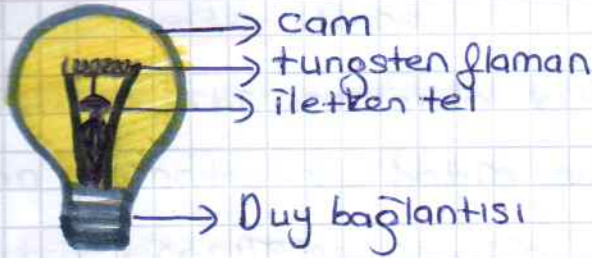 cam
tungsten flaman
iletken tel
Duy bağlantısı